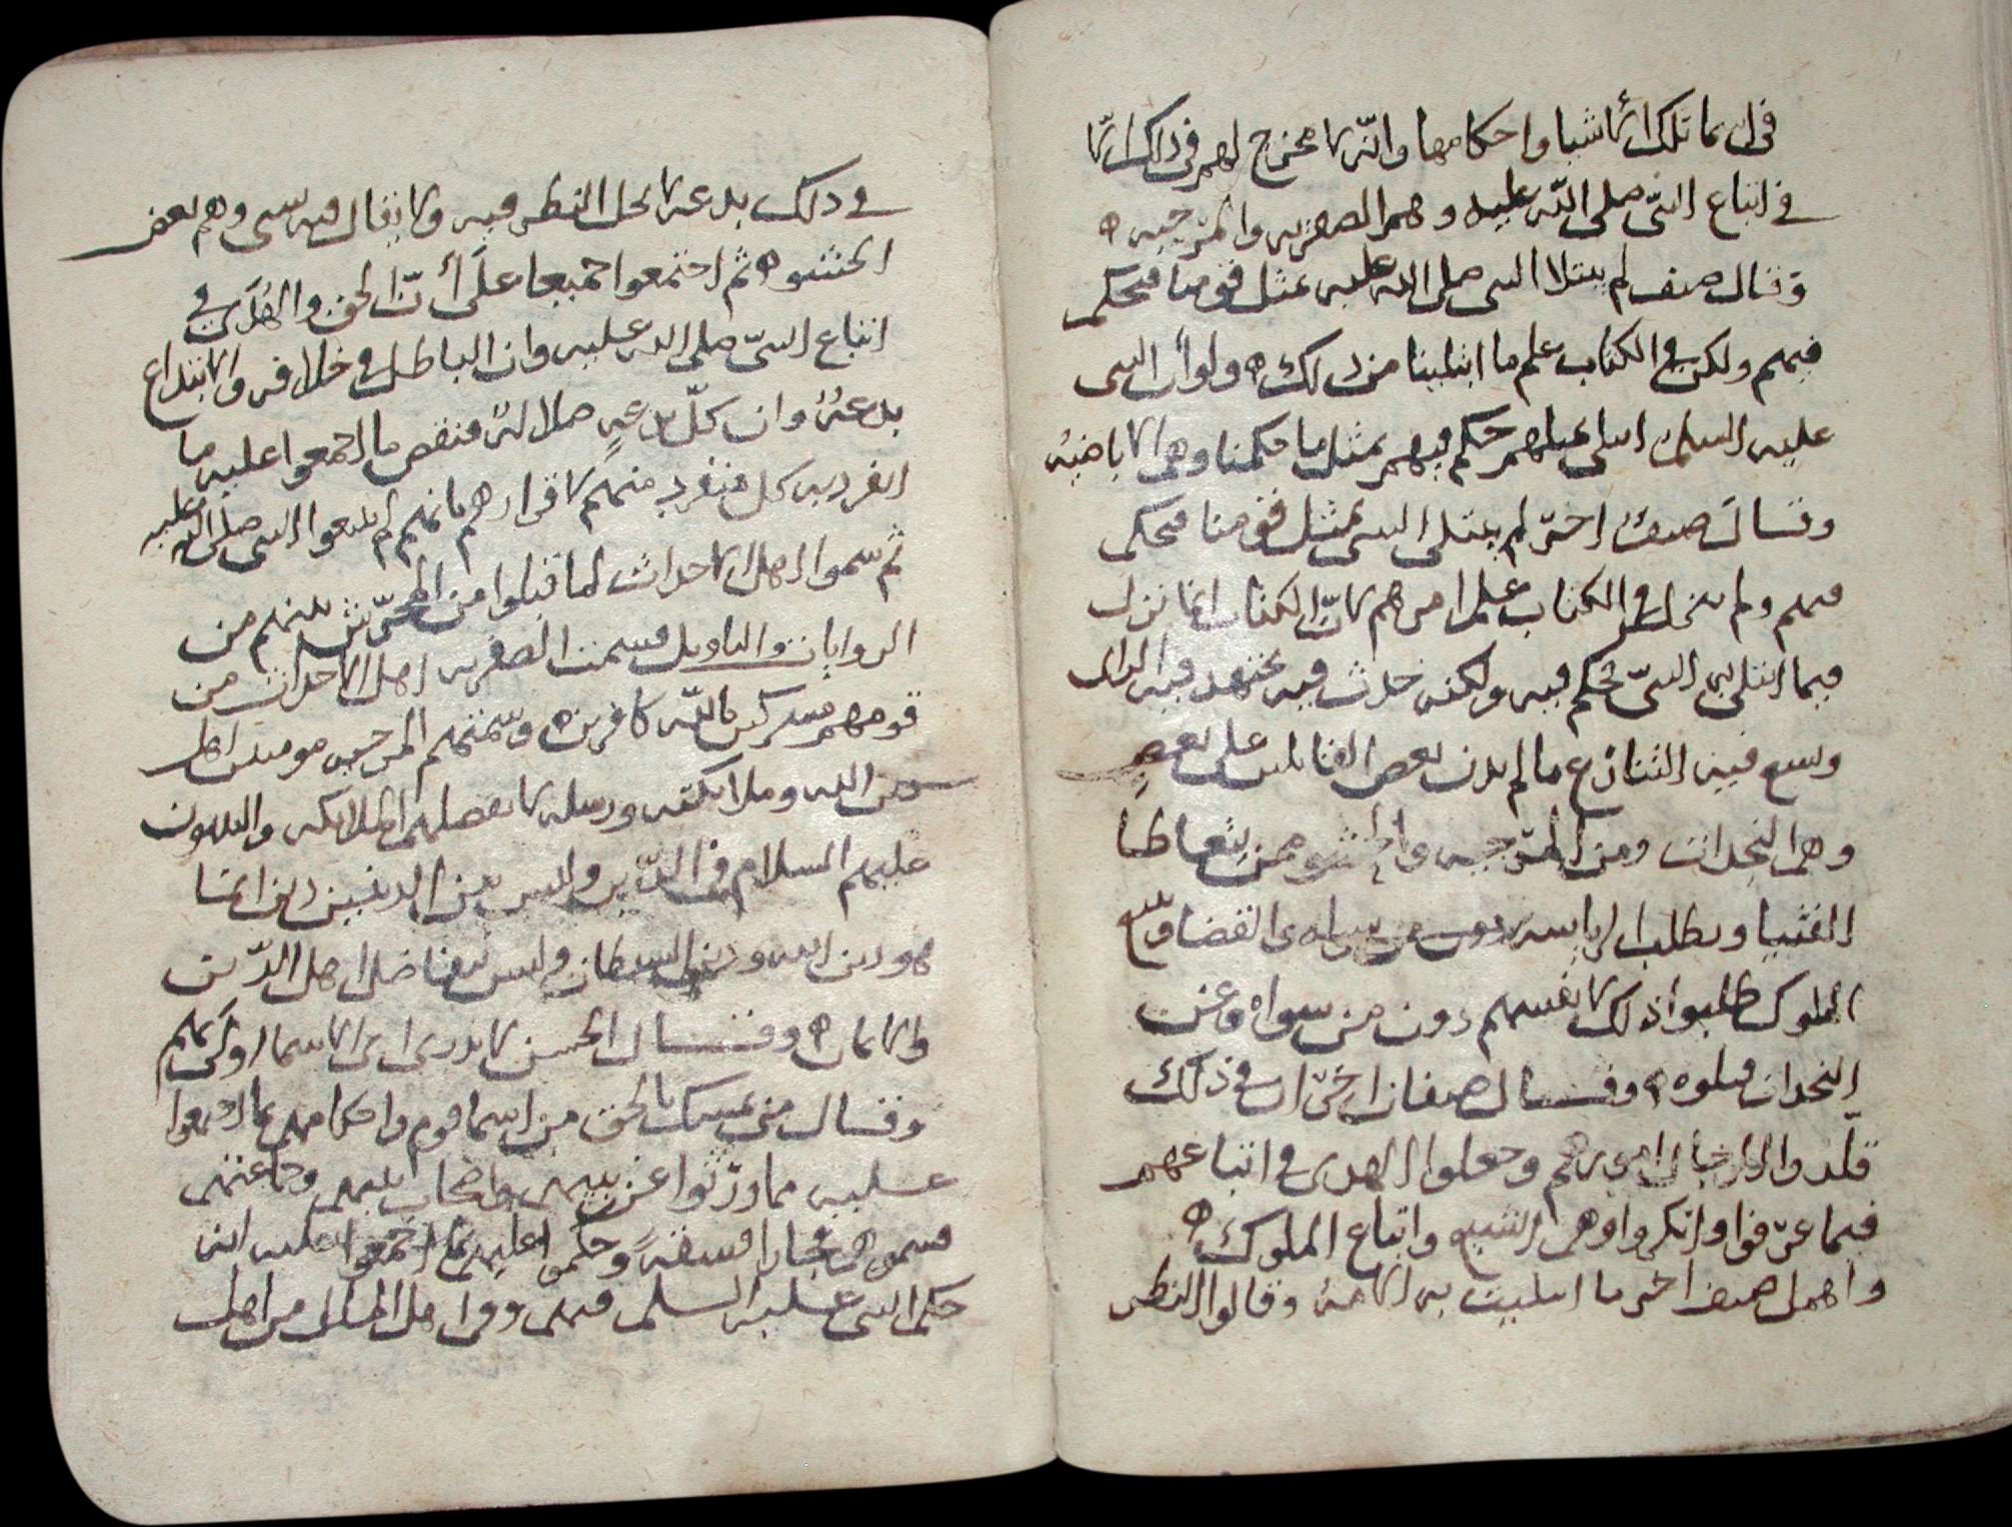 في اسما تلك الاشيا واحكامها وانه لا مخرج لهم في ذلك الا
في اتباع النبي صلى الله عليه وهم الصفرية والمرجية ه
وقال صنف لم يبتلا النبي صلى الله عليه بمثل قومنا فيحكم
فيهم ولكن في الكتاب علم ما ابتلينا من ذلك ه ولو أن النبي
عليه السلم ابتلي بمثلهم حكم فيهم بمثل ما حكمنا وهم الاباضية
وقال صنف اخر لم يبتلى النبي بمثل قومنا فيحكم
فيهم ولم ينزل في الكتاب علم امرهم لان الكتاب انما نزل
فيما ابتلي به النبي فحكم فيه ولكنه حدث فيه يجتهد فيه الراي
وسع فيه التنازع ما لم يدن بعض القايلين على بعض
وهم النجدات ومن المرجية والحشو من يتعاطا
الفتيا ويطلب الرياسة القضا
الملوك طلبوا ذلك لانفسهم دون من سواه وعن
النجدات قبلوه ه وقال صنفان اخران في ذلك
قلدوا الرجال امورهم وجعلوا الهدى في اتباعهم
فيما عرفوا وانكروا وهم الشيع واتباع الملوك ه
واهمل صنف اخر ما ابتليت به الامة وقالوا النظر
في ذلك بدعة لا يحل النظر فيه ولا يقال فيه شي وهم بعض
الحشو ه ثم اجتمعوا جميعا على أن الحق والهدى في
اتباع النبي صلى الله عليه وان الباطل في خلافه والابتداع
بدعة وان كل بدعة ضلالة فنقض ما اجمعوا عليه ما
انفرد به كل منفرد منهم لاقرارهم بانهم لم يتبعوا النبي صلى الله عليه
ثم سموا اهل الاحداث لما قبلوا من المحرش بينهم من
الروايات والتاويل فسمت الصفرية اهل الاحداث من
قومهم مشركين بالله كافرين ه وسمتهم المرجية مومنين اهل
الله وملائكته ورسله لا يفضلهم الملائكة والنبيون
عليهم السلام في الدين وليس بين الدينين دين انما
هو دين الله ودين الشيطان وليس يتفاضل اهل الدين
والايمان ه وقال الحسن لا ندري اي الاسما اولى بهم
وقال من تمسك بالحق من اسما قوم واحكامهم بما اجمعوا
عليه مما ورثوا عن نبيهم واصحاب نبيهم وجماعتهم
فسموهم فجارا فسقة وحكموا عليهم بما اجمعوا عليه انه
حكم النبي عليه السلم فيهم وفي اهل الملل من اهل